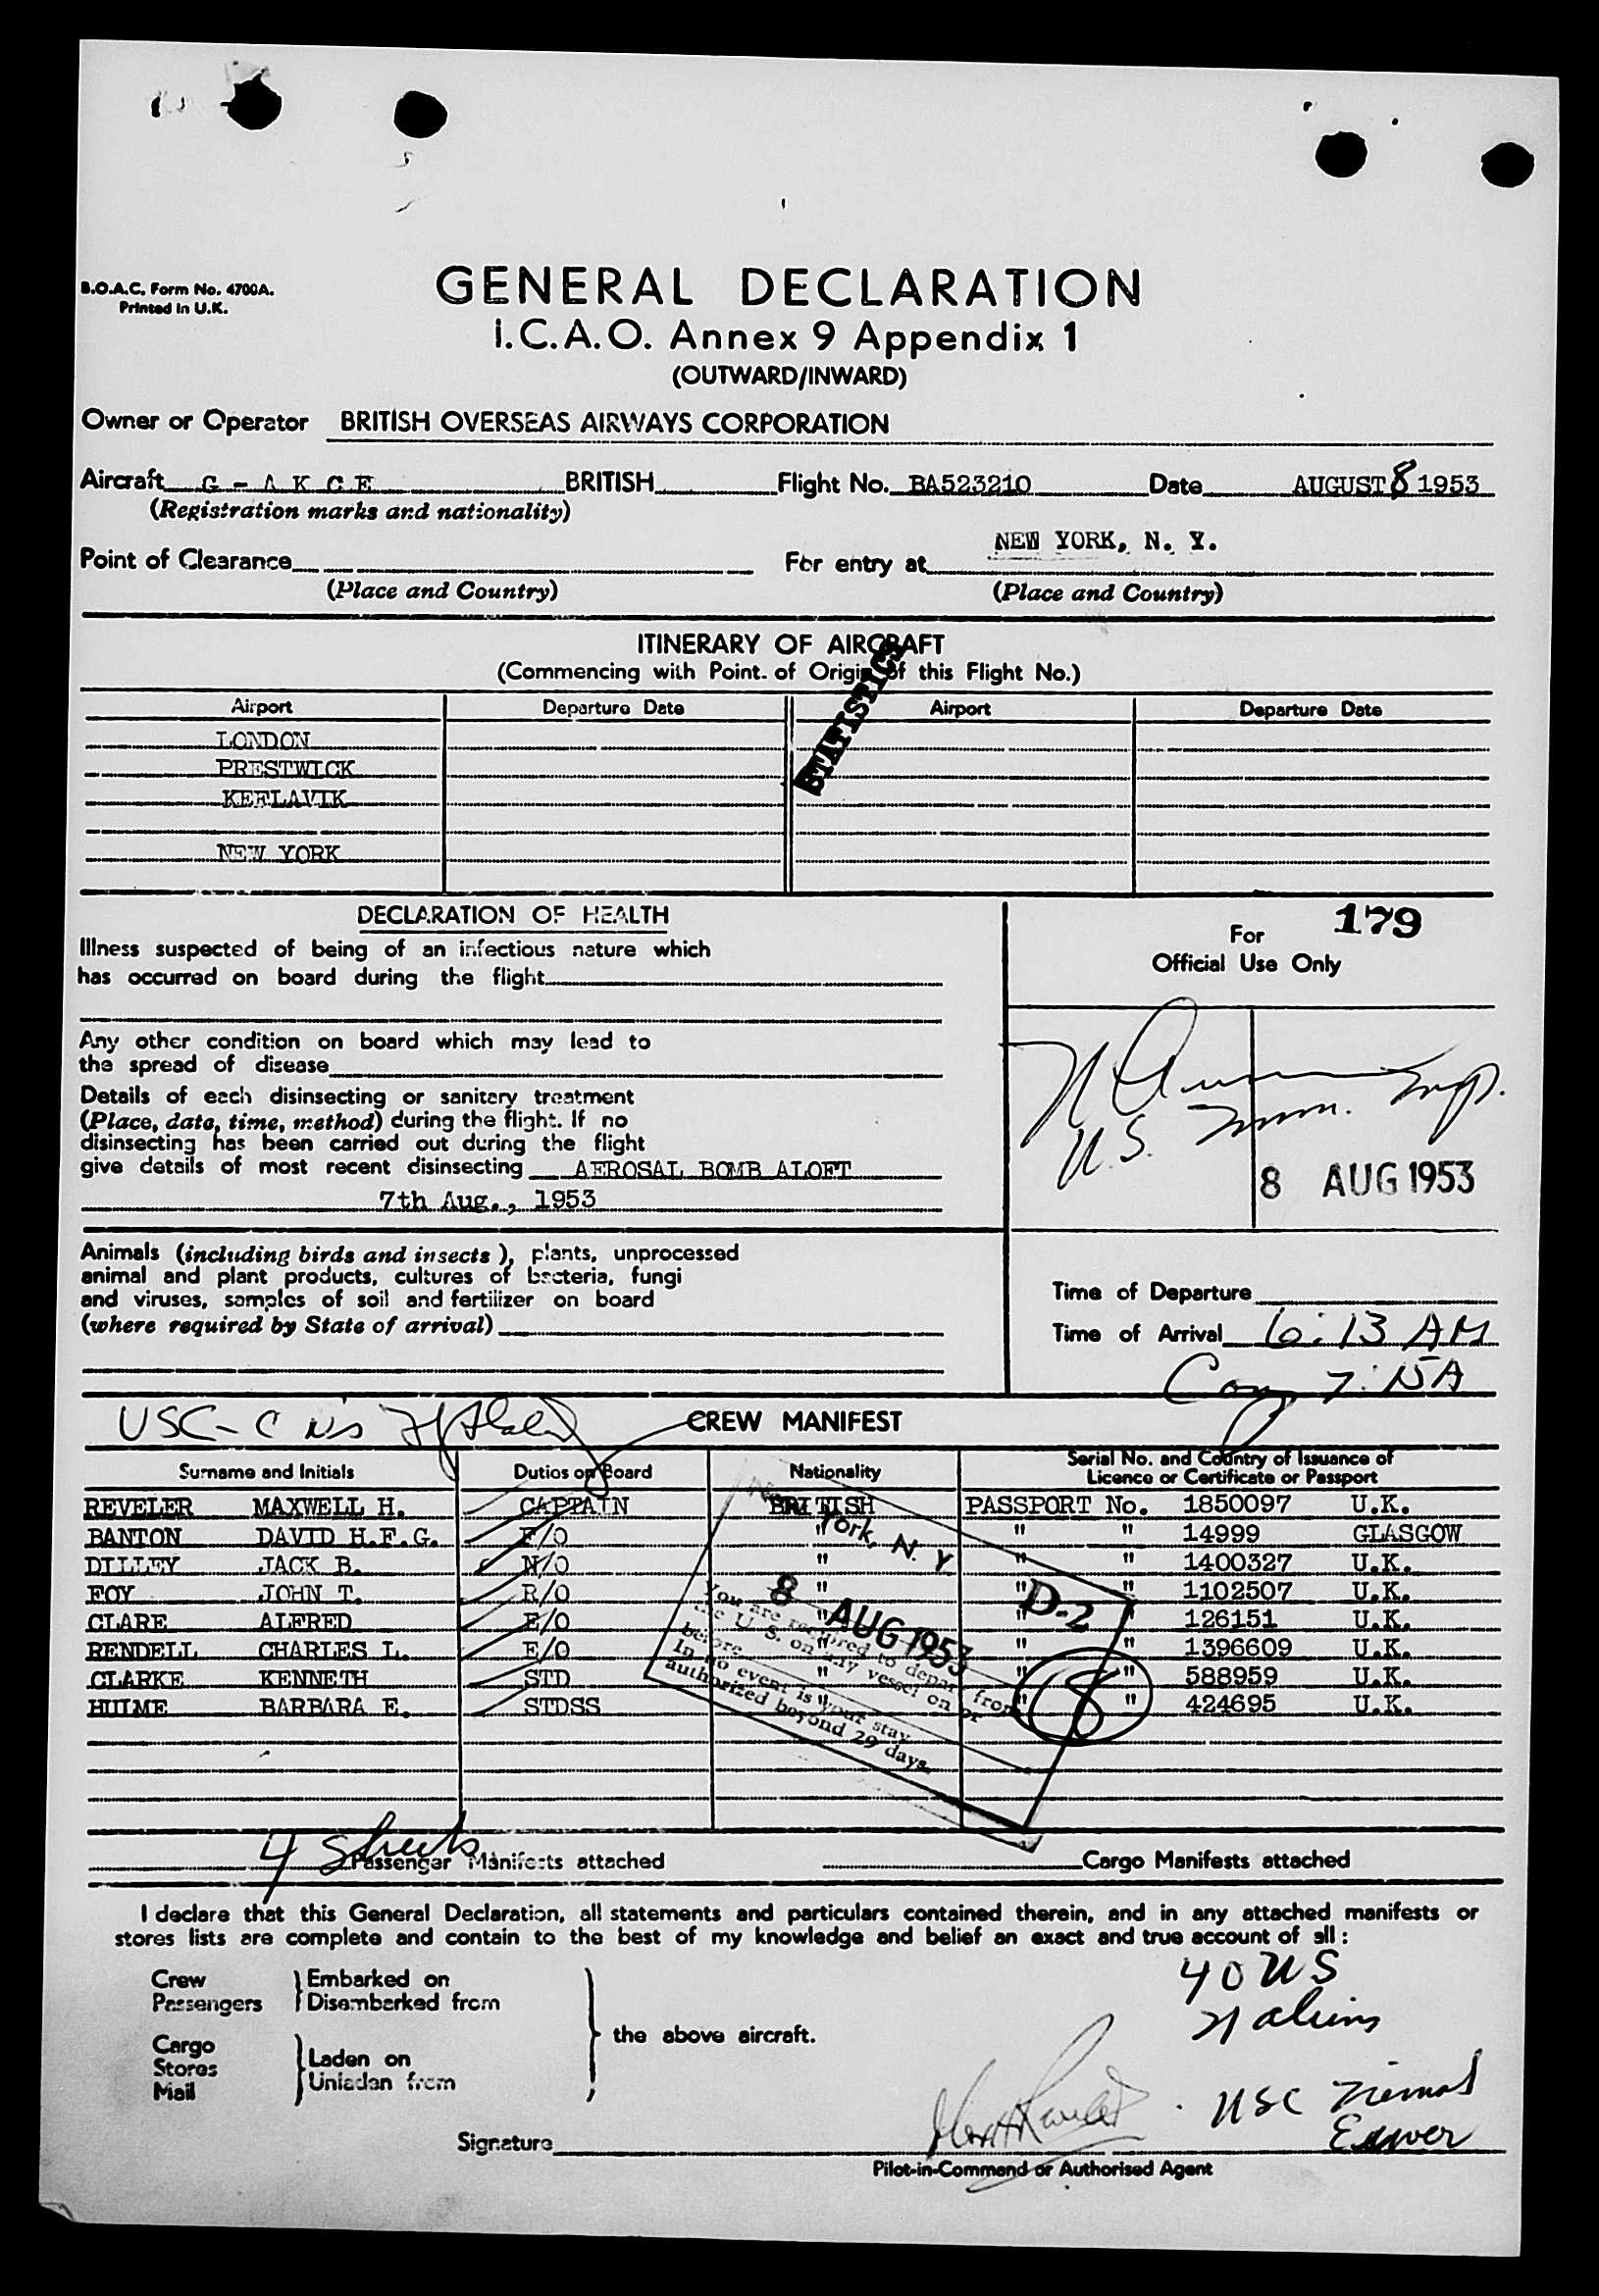 B.O.A.C. Form No. 4700A.
Printed in U.K.
GENERAL DECLARATION
I.C.A.O. Annex 9 Appendix 1
(OUTWARD/INWARD)
Owner or Operator BRITISH OVERSEAS AIRWAYS CORPORATION
Aircraft G - A K C E BRITISH Flight No. BA523210 Date AUGUST 8 1953
(Registration marks and nationality)
NEW YORK, N. Y.
Point of Clearance For entry at
(Place and Country) (Place and Country)
ITINERARY OF AIRCRAFT
(Commencing with Point of Origin of this Flight No.)
STATISTICS
Airport Departure Date Airport Departure Date
LONDON
PRESTWICK
KEFLAVIK
NEW YORK
DECLARATION OF HEALTH
Illness suspected of being of an infectious nature which
has occurred on board during the flight
Any other condition on board which may lead to
the spread of disease
Details of each disinsecting or sanitary treatment
(Place, date, time, method) during the flight. If no
disinsecting has been carried out during the flight
give details of most recent disinsecting AEROSAL BOMB ALOFT
7th Aug., 1953
Animals (including birds and insects), plants, unprocessed
animal and plant products, cultures of bacteria, fungi
and viruses, samples of soil and fertilizer on board
(where required by State of arrival)
For 179
Official Use Only
U.S. Imm. Insp.
8 AUG 1953
Time of Departure
Time of Arrival 6:13 AM
7:15A
USC-C
CREW MANIFEST
Surname and Initials Duties on Board Nationality Serial No. and Country of Issuance of
Licence or Certificate or Passport
REVELER MAXWELL H. CAPTAIN BRITISH PASSPORT No. 1850097 U.K.
BANTON DAVID H.F.G. F/O " " " 14999 GLASGOW
DILLEY JACK B. N/O " " " 1400327 U.K.
FOY JOHN T. R/O " " " 1102507 U.K.
CLARE ALFRED E/O " " " 126151 U.K.
RENDELL CHARLES L. E/O " " " 1396609 U.K.
CLARKE KENNETH STD " " " 588959 U.K.
HULME BARBARA E. STDSS " " " 424695 U.K.
New York, N. Y.
8 AUG 1953
D-2
You are required to depart from
the U. S. on any vessel on or
before
In no event is your stay
authorized beyond 29 days.
8
4 Sheets Passenger Manifests attached Cargo Manifests attached
I declare that this General Declaration, all statements and particulars contained therein, and in any attached manifests or
stores lists are complete and contain to the best of my knowledge and belief an exact and true account of all:
Crew Embarked on
Passengers Disembarked from
the above aircraft.
Cargo
Stores Laden on
Mail Unladen from
40 US
21 aliens
USC
Signature
Pilot-in-Command or Authorised Agent